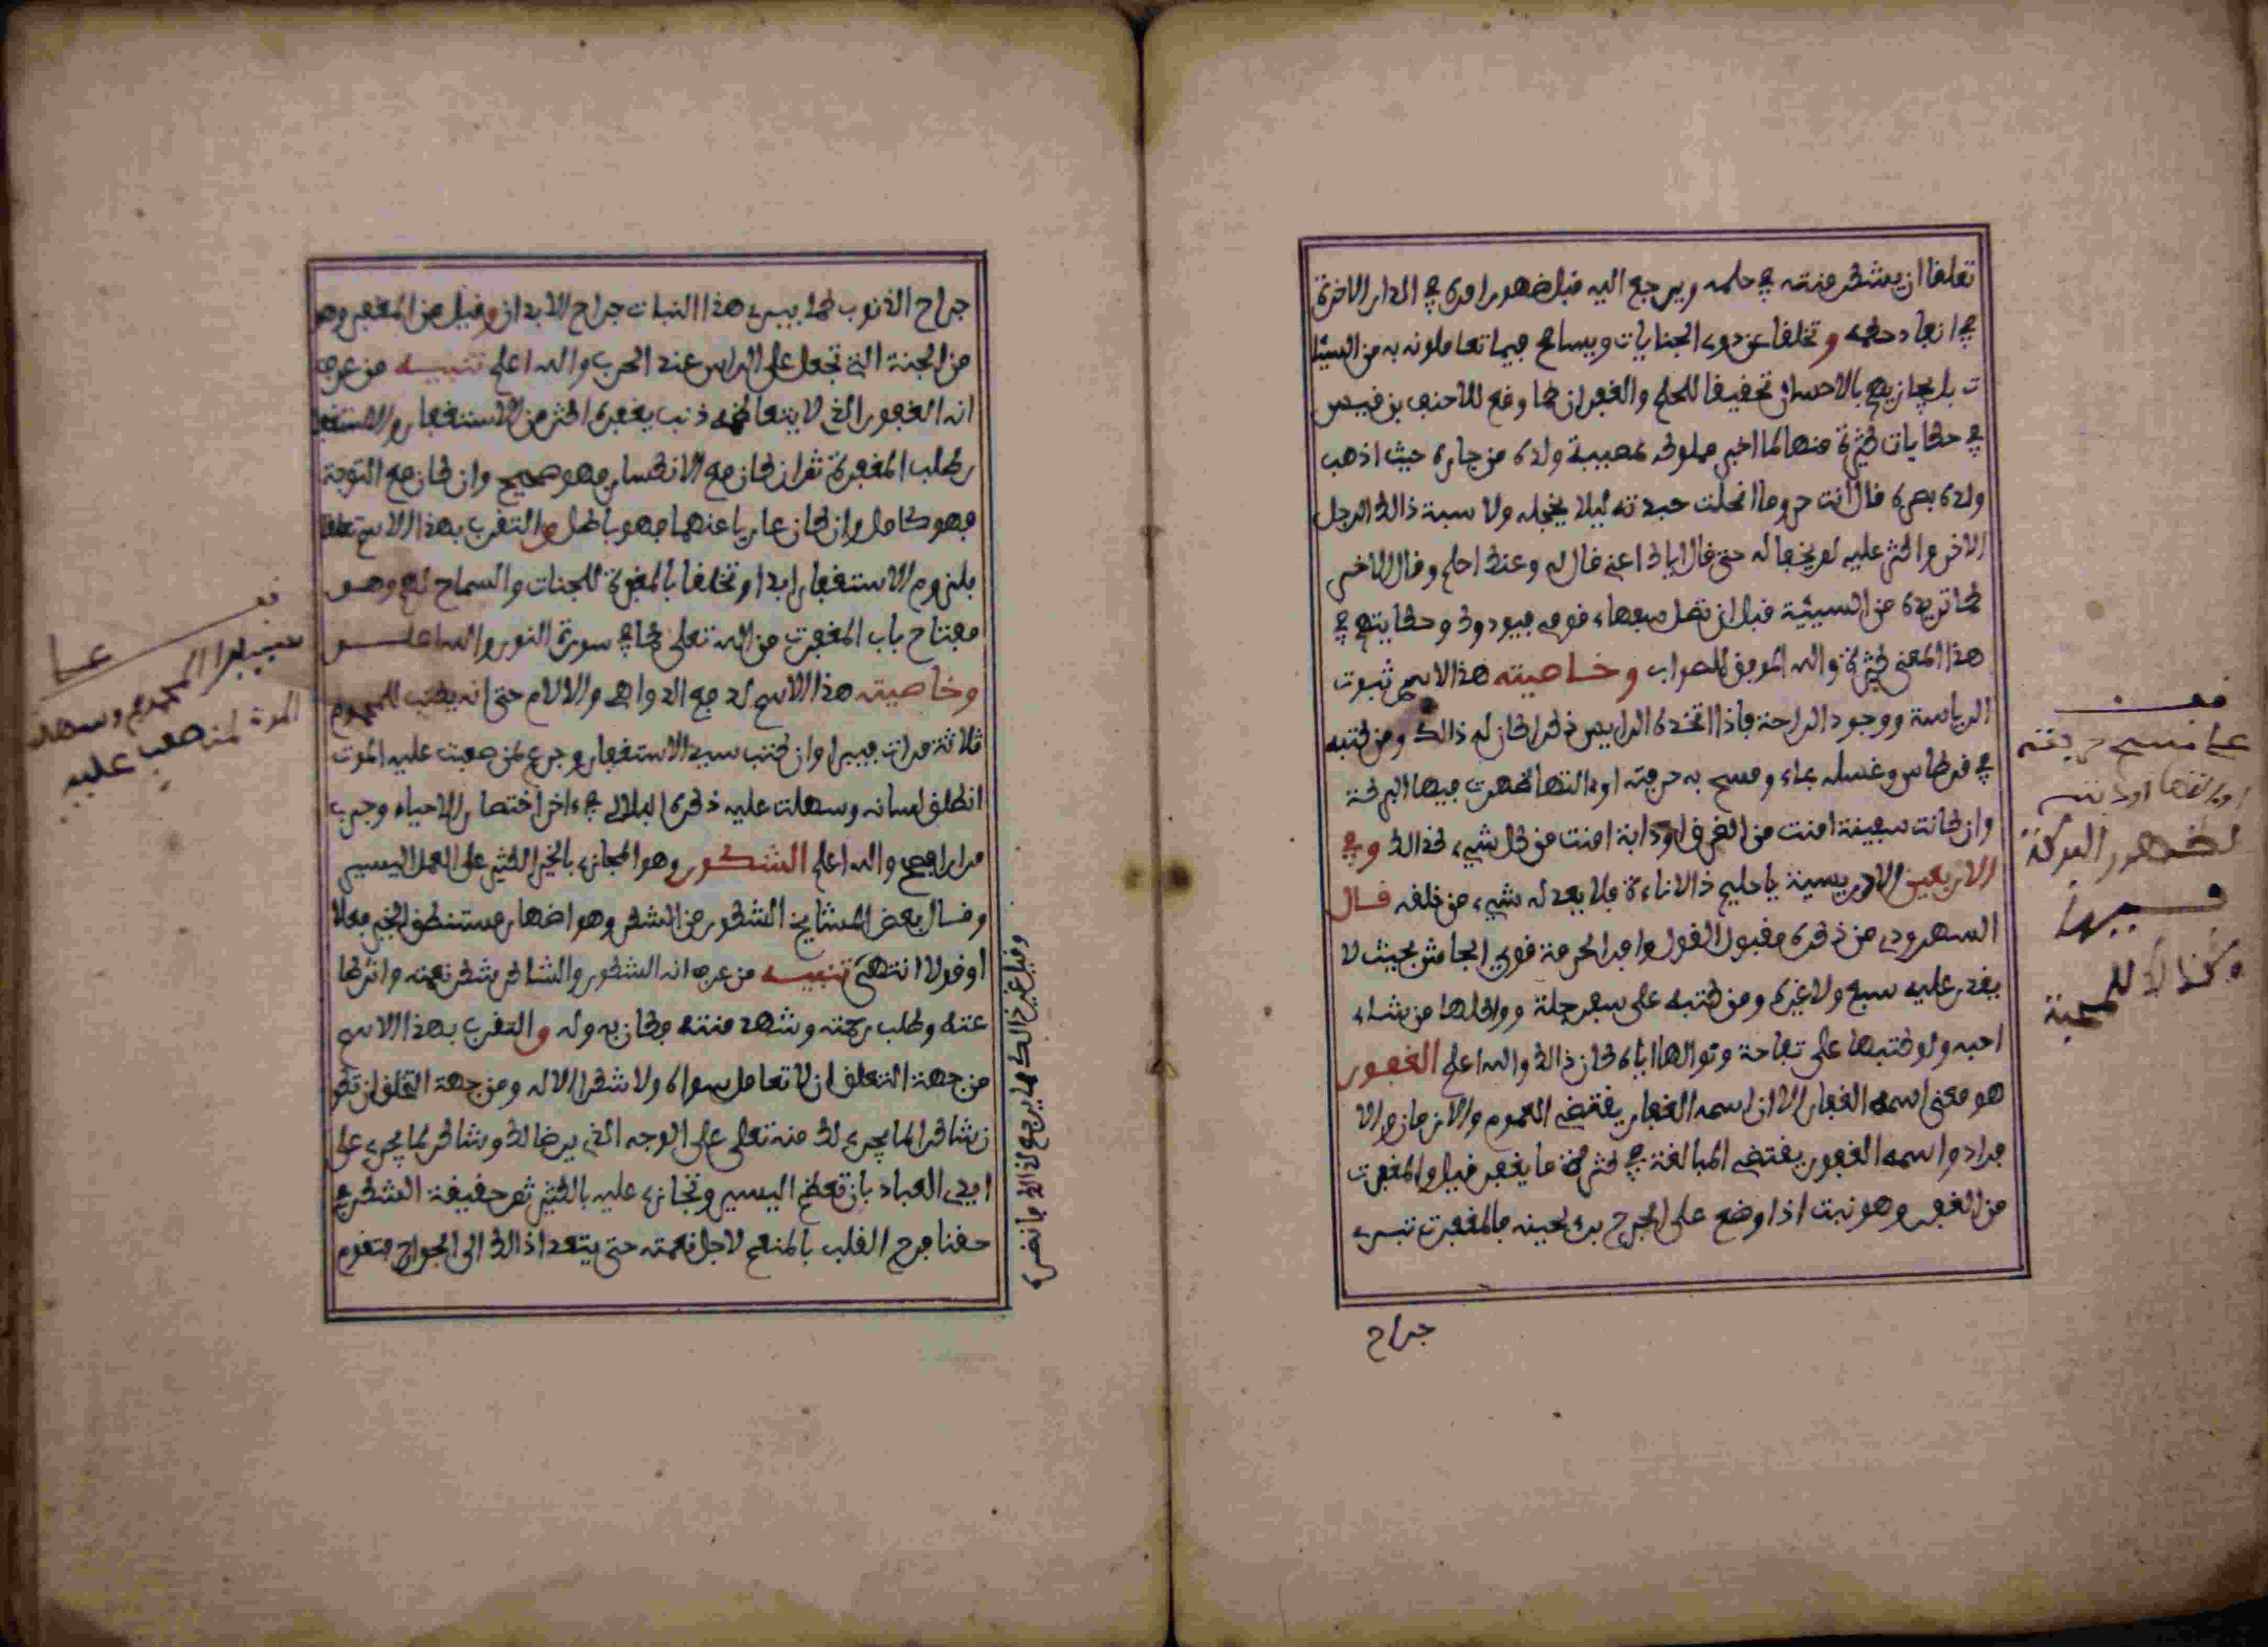 تعلقا ان يشكر منته في حلمه ويرجع اليه قبل ضهور امره في الدار الاخرة
في انفاد حكمه وتخلقا عن ذوي الجنايات ويسامح فيما تعاملونه به من السيئا
ت بل يجازيهم بالاحسان تحقيقا للحلم والغفران كما وقع للاحنف بن قيس
في حكايات كثيرة منها لما اخبر مملوكه بمصيبة ولده من جاره حيث اذهب
ولده بصره فقال انت حر وما انحلت حبوته ليلا يخجله ولا سبه ذالك الرجل
الاخر واكثر عليه لم يخفا له حتى قال اياك اعني قال له وعنك احلم وقال للاخر
كما تريده من السيئة قبل ان تصل سفهاء قومي فيودوك وحكايتهم في
هذا المعنى كثيرة والله الموفق للصواب وخاصيته هذا الاسم ثبوت
الرياسة ووجود الراحة فاذا اتخذه الرايس ذكرا كان له ذالك ومن كتبه
في قرطاس وغسله بماء ومسح به حرفته او دالتها ظهرت فيها البركة
وان كانت سفينة امنت من الغرق او دابة امنت من كل شيء كذالك وفي
الاربعين الادريسية يا حليم ذا الاناءة فلا يعدله شيء من خلقه قال
السهرودي من ذكره مقبول القول وافر الحرمة قوي الجاش بحيث لا
يقدر عليه سبع ولا غيره ومن كتبه على سفرجلة وواكلها من يشاء
احبه ولو كتبها على تفاحة وتوالها اياه كان ذالك والله اعلم الغفور
هو معنى اسمه الغفار الا ان اسمه الغفار يقتضي العموم والازمان والا
فراد واسمه الغفور يقتضي المبالغة في كثرة ما يغفر قيل والمغفرت
من الغفر وهو نبت اذا وضع على الجرح برء لحينه فالمغفرت تبرء
جراح
على مسح حرفته
او دالتها او دابته
لضهور البركة
فيها
وكذا لك للمحبة
جراح الذنوب كما يبرء هذا النبات جراح الابدان وقيل من المغفر وهو
من الجنة التي تجعل على الراس عند الحرب والله اعلم تنبيه من عرف
انه الغفور الذي لا يتعاظمه ذنب يغفره اكثر من الاستغفار والاستغفا
ر طلب المغفرة ثم ان كان مع الانكسار فهو صحيح وان كان مع التوبة
فهو كامل وان كان عاريا عنهما فهو باطل والتقرب بهذا الاسم تعلقا
بلزوم الاستغفار ابدا وتخلقا بالمغفرة للجنات والسماح لهم وهو
مفتاح باب المغفرت من الله تعلى كما في سورة النور والله اعلم
وخاصيته هذا الاسم لدفع الدواهي والالام حتى انه يكتب للمحموم
ثلاثة مرات فيبرا وان كتب سيد الاستغفار وجرع لمن صعبت عليه الموت
انطلق لسانه وسهلت عليه ذكره البلالي في ءاخر اختصار الاحياء وجرب
مرارا فصح والله اعلم الشكور وهو المجازي بالخير الكثير على العمل اليسير
وقال بعض المشايخ الشكور من الشكر وهو اضهار مستنطق الخير فعلا
او قولا انتهى تنبيه من عرف انه الشكور والشاكر شكر نعمته واثرها
عنه وطلب رحمته وشهد منته فكان به وله والتقرب بهذا الاسم
من جهة التعلق ان لا تعامل سواه ولا شكر الا له ومن جهة التخلق ان تكو
ن شاكرا لما يجري لك منه تعلى على الوجه الذي يرضا لك وشاكر لما يجري على
ايدي العباد بان تعظم اليسير وتجازي عليه بالكثير ثم حقيقة الشكر في
حقنا فرح القلب بالمنعم لاجل نعمته حتى يتعدا ذالك الى الجوارح فتقوم
وقيل غير ذالك مما يرجع لذالك فانضره
ليبرا المحموم وسهل
الموت لمن صعب عليه